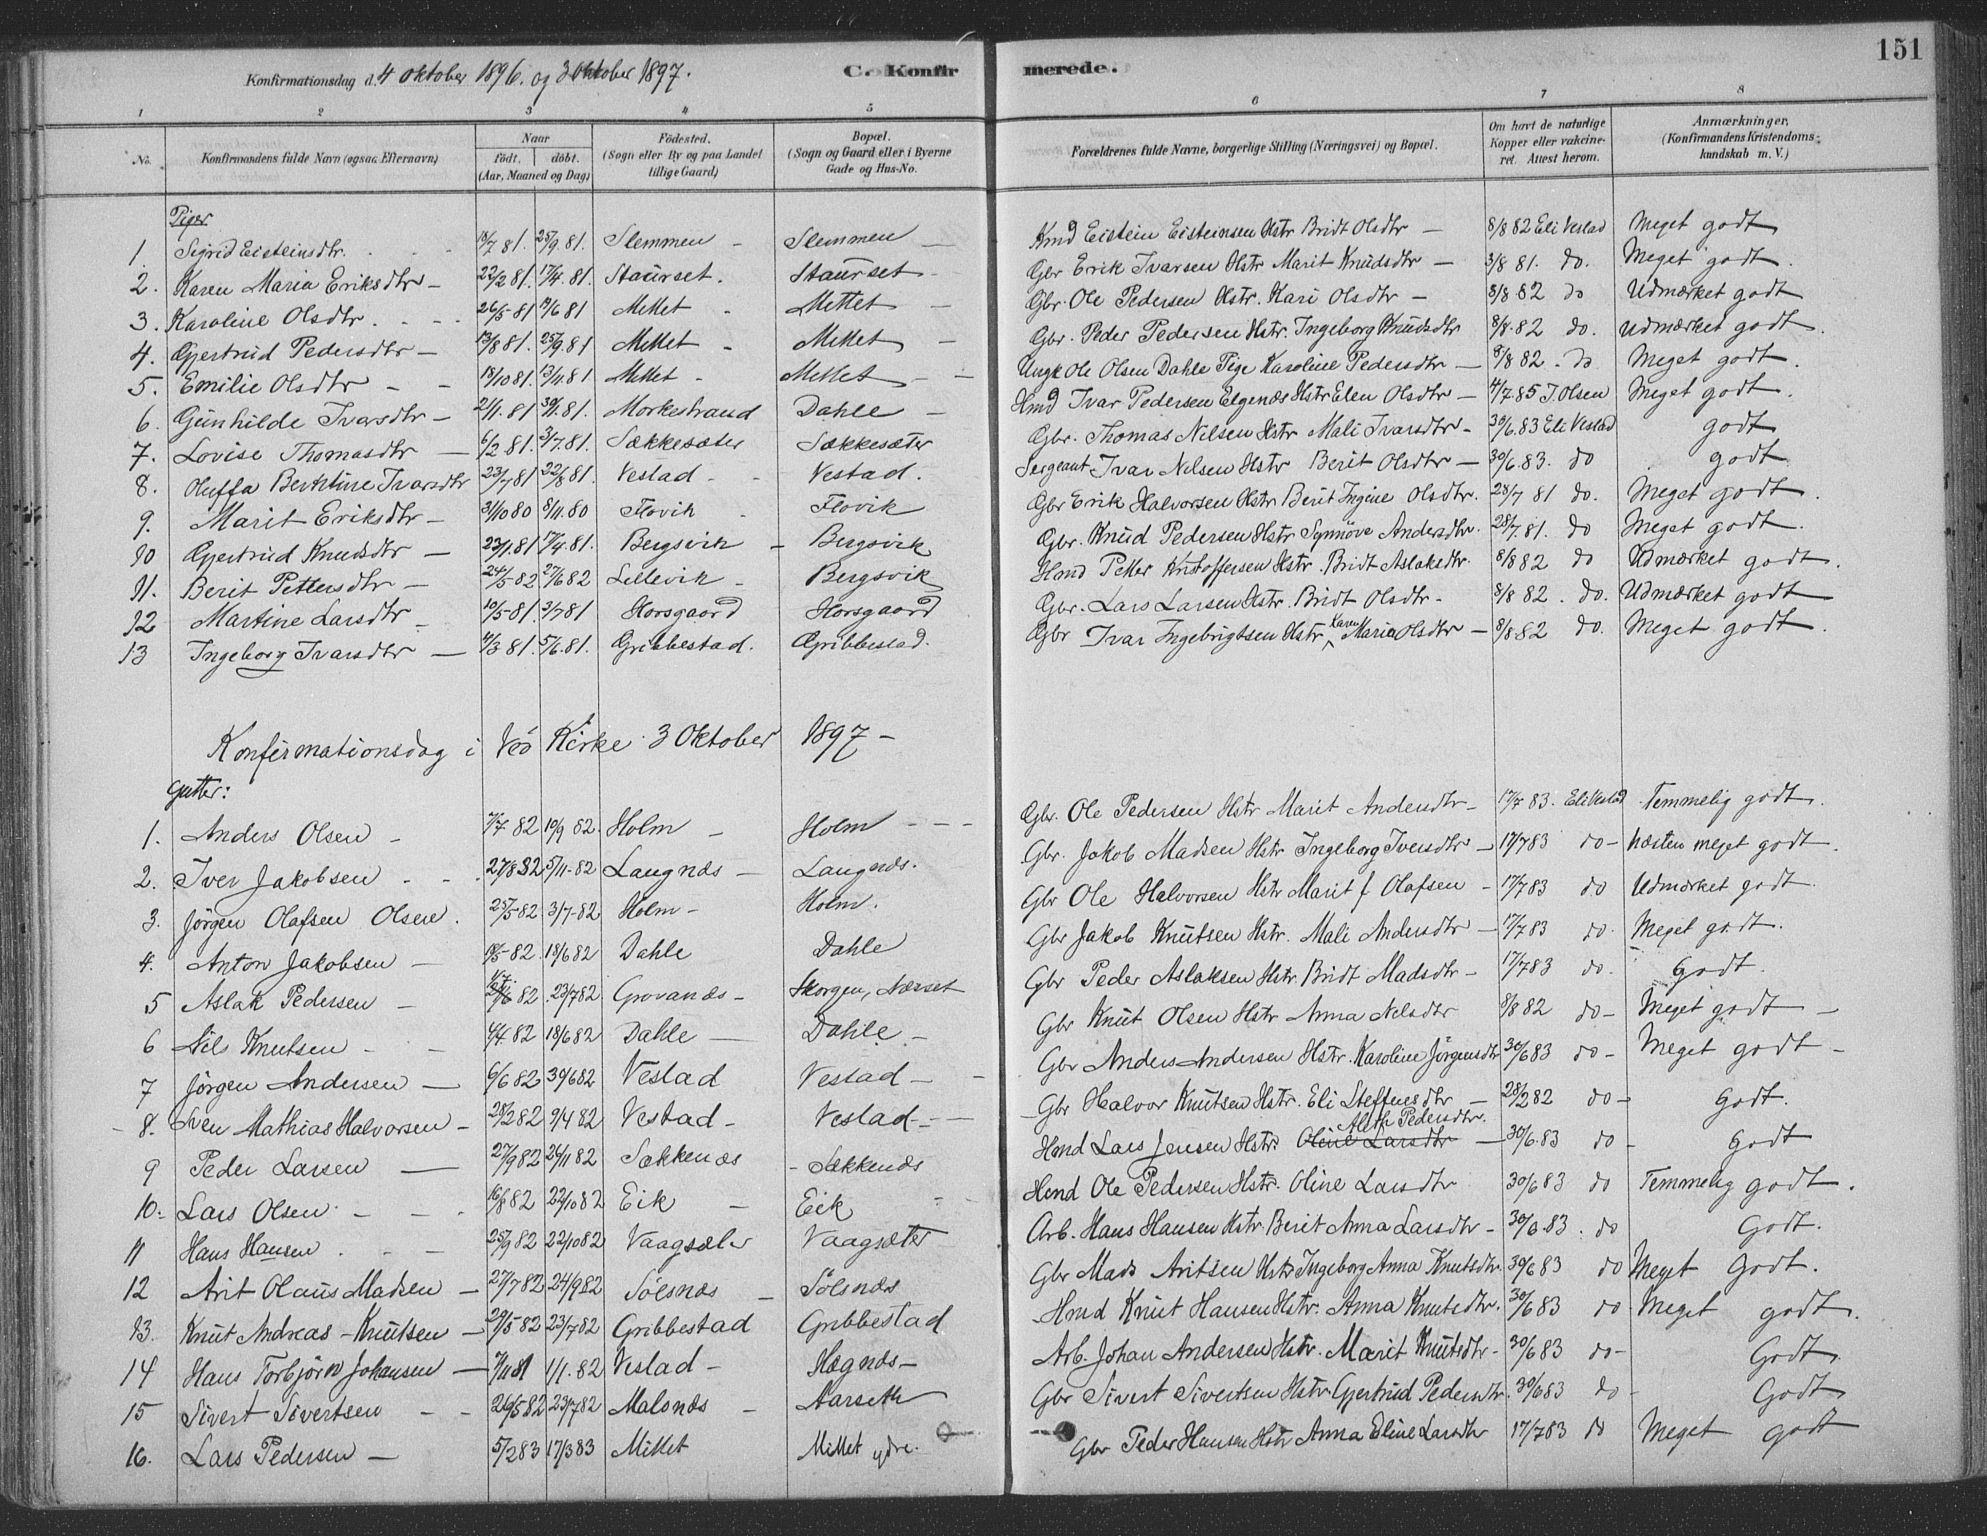 151
Konfirmationsdag d. 4 oktober 1896. og 3 Oktober 1897. C. Konfirmerede.
1 2 3 4 5 6 7 8
No. Konfirmandens fulde Navn (ogsaa Efternavn) Naar født. døbt. (Aar, Maaned og Dag) Fødested. (Sogn eller By og paa Landet tillige Gaard) Bopæl. (Sogn og Gaard eller i Byerne Gade og Hus-No. Forældrenes fulde Navne, borgerlige Stilling (Næringsvei) og Bopæl. Om havt de naturlige Kopper eller vakcineret. Attest herom. Anmærkninger, (Konfirmandens Kristendomskundskab m. V.)
Piger
1. Sigrid Eisteinsdtr. 18/7 81. 25/9. 81. Slemmen - Slemmen - Hmd Eistein Eisteinsen Hstr Bridt Olsdtr - 8/8 82 Eli Vestad Meget godt
2. Karen Maria Eriksdtr - 22/2 81. 17/4. 81. Staurset. Staurset - Gbr. Erik Ivarsen Hstr Marit Knudsdtr - 3/8 81. do. Meget godt.
3. Karoline Olsdtr. 26/5 81 19/6 81 Mettet - Mettet - Gbr. Ole Pedersen Hstr. Kari Olsdtr - 8/8 82 do Udmærket godt
4. Gjertrud Pedersdtr - 13/8 81. 25/9. 81 Mettet - Mettet - Gbr. Peder Pedersen Hstr. Ingeborg Knudsdtr 8/8. 82 do. Udmærket godt.
5. Emilie Olsdtr - - 18/10 81. 13/11 81 Mettet - Mettet - Ungk Ole Olsen Dahle Pige Karoline Pedersdtr - 8/8 82. do Meget godt.
6. Gunhilde Ivarsdtr - 2/1. 81 30/1. 81. Morkestrand Dahle - Hmd Ivar Pedersen Elgenæs Hstr Elen Olsdtr - 4/7. 85 J. Olsen Meget godt.
7. Lovise Thomasdtr - 6/2 81. 3/7. 81. Sækkesæter Sækkesæter Gbr. Thomas Nilsen Hstr Mali Ivarsdtr - 30/6. 83 Eli Vestad godt
8. Oluffa Berthine Ivarsdtr 23/7 81 22/8 81. Vestad - - Vestad. Sergeant Ivar Nilsen Hstr Berit Olsdtr - 30/6. 83. do godt.
9. Marit Eriksdtr - 31/10 80 8/11. 80 Flovik - Flovik Gbr Erik Halvorsen Hstr Berit Ingine Olsdtr. 28/7 81 do. Meget godt.
10 Gjertrud Knudsdtr - 23/1. 81 17/4. 81. Bergsvik - Bergsvik Gbr. Knud Pedersen Hstr Synnöve Andersdtr. 28/7. 81. do Meget godt.
11. Berit Pettersdtr - 24/5 82 27/6 82 Lillevik - Bergsvik Hmd Petter Kristoffersen Hstr. Bridt Aslaksdtr. 8/8 82 do Udmærket godt.
12 Martine Larsdtr - 10/5 81. 3/7 81 Horsgaard Horsgaard Gbr. Lars Larsen Hstr. Bridt Olsdtr - 8/8 82. do. Udmærket godt
13 Ingeborg Ivarsdtr - 4/3 81. 5/6. 81. Gribbestad. Gribbestad. Gbr Ivar Ingebrigtsen Hstr Karen Maria Olsdtr - 8/8 82 do. Meget godt.
Konfirmationsdag i Veö Kirke 3 Oktober 1897 -
Gutter:
1. Anders Olsen - 7/7 82 10/9 82. Holm - Holm - - - Gbr. Ole Pedersen Hstr Marit Andersdtr - 17/7 83. Eli Vestad Temmelig godt.
2. Iver Jakobsen - - 27/8 82 5/11-82 Laugnæs - Laugnæs. Gbr. Jakob Madsen Hstr Ingeborg Iversdtr - 17/7 83 do - næsten meget godt.
3. Jörgen Olafsen Olsen. 25/5 82 3/7-82 Holm - Holm. Gbr Ole Halvorsen Hstr Marit f Olafsen - 17/7 83 do Udmærket godt.
4. Anton Jakobsen - 18/5-82 18/6 82 Dahle Dahle Gbr Jakob Knutsen Hstr. Mali Andersdtr - 17/7 83 do. Meget godt.
5 Aslak Pedersen - 82 23/7 82 Grovanæs - Skorgen, Nærset Gbr Peder Aslaksen Hstr. Bridt Madsdtr - 17/7 83 do. Godt.
6 Nils Knutsen - - 4/4. 82 18/6 82 Dahle - Dahle. - Gbr Knut Olsen Hstr Anna Nelsdtr 8/8 82 do - Meget godt -
7 Jörgen Andersen - 6/6 82 30/6 82 Vestad Vestad - - Gbr Anders Andersen Hstr. Karoline Jörgensdtr 30/6 83 do - Meget godt -
8. Sven Mathias Halvorsen - 25/2 82 9/4 82 Vestad - Vestad - - Gbr Halvor Knutsen Hstr. Eli Steffensdtr - 28/2 82 do - Godt.
9 Peder Larsen - 27/9 82 26/11 82 Sækkenæs - Sækkenæs Hmd Lars Jensen Hstr. Oline Larsdtr Aleth Pedersdtr. - 30/6. 83 do - Godt
10. Lars Olsen - - - 16/8 82 22/10 82 Eik - Eik Hmd Ole Pedersen Hstr. Oline Larsdtr 30/6 83 do Temmelig godt.
11 Hans Hansen. - - 25/9 82 22/10 82 Vaagsæter Vaagsæter Arb. Hans Hansen Hstr. Berit Anna Larsdtr - 30/6 83. do Godt.
12 Arit Olaus Madsen - 27/7 82 24/9 82 Sölsnæs - Sölsnæs Gbr Mads Aritsen Hstr Ingeborg Anna Knutsdtr. 30/6 83 do Meget Godt.
13. Knut Andreas Knutsen - 29/5 82 23/7 82 Gribbestad Gribbestad Hmd Knut Hansen Hstr. Anna Knutsdtr. 30/6 83 do - Meget godt.
14 Hans Torbjörn Johansen - 7/11 81 1/1. 82 Vestad - Hægnæs - Arb. Johan Andersen Hstr. Marit Knutsdtr - 30/6 83 do - Godt.
15 Sivert Sivertsen - - 26/5 82 23/7 82 Malsnæs - Aarseth Gbr Sivert Sivertsen Hstr. Gjertrud Pedersdtr. 30/6 83 do - Godt
16. Lars Pedersen - 5/2 83 17/3 83 Mittet Mittet ydre. Gbr Peder Hansen Hstr Anna Eline Larsdtr 17/7 83 do Meget godt